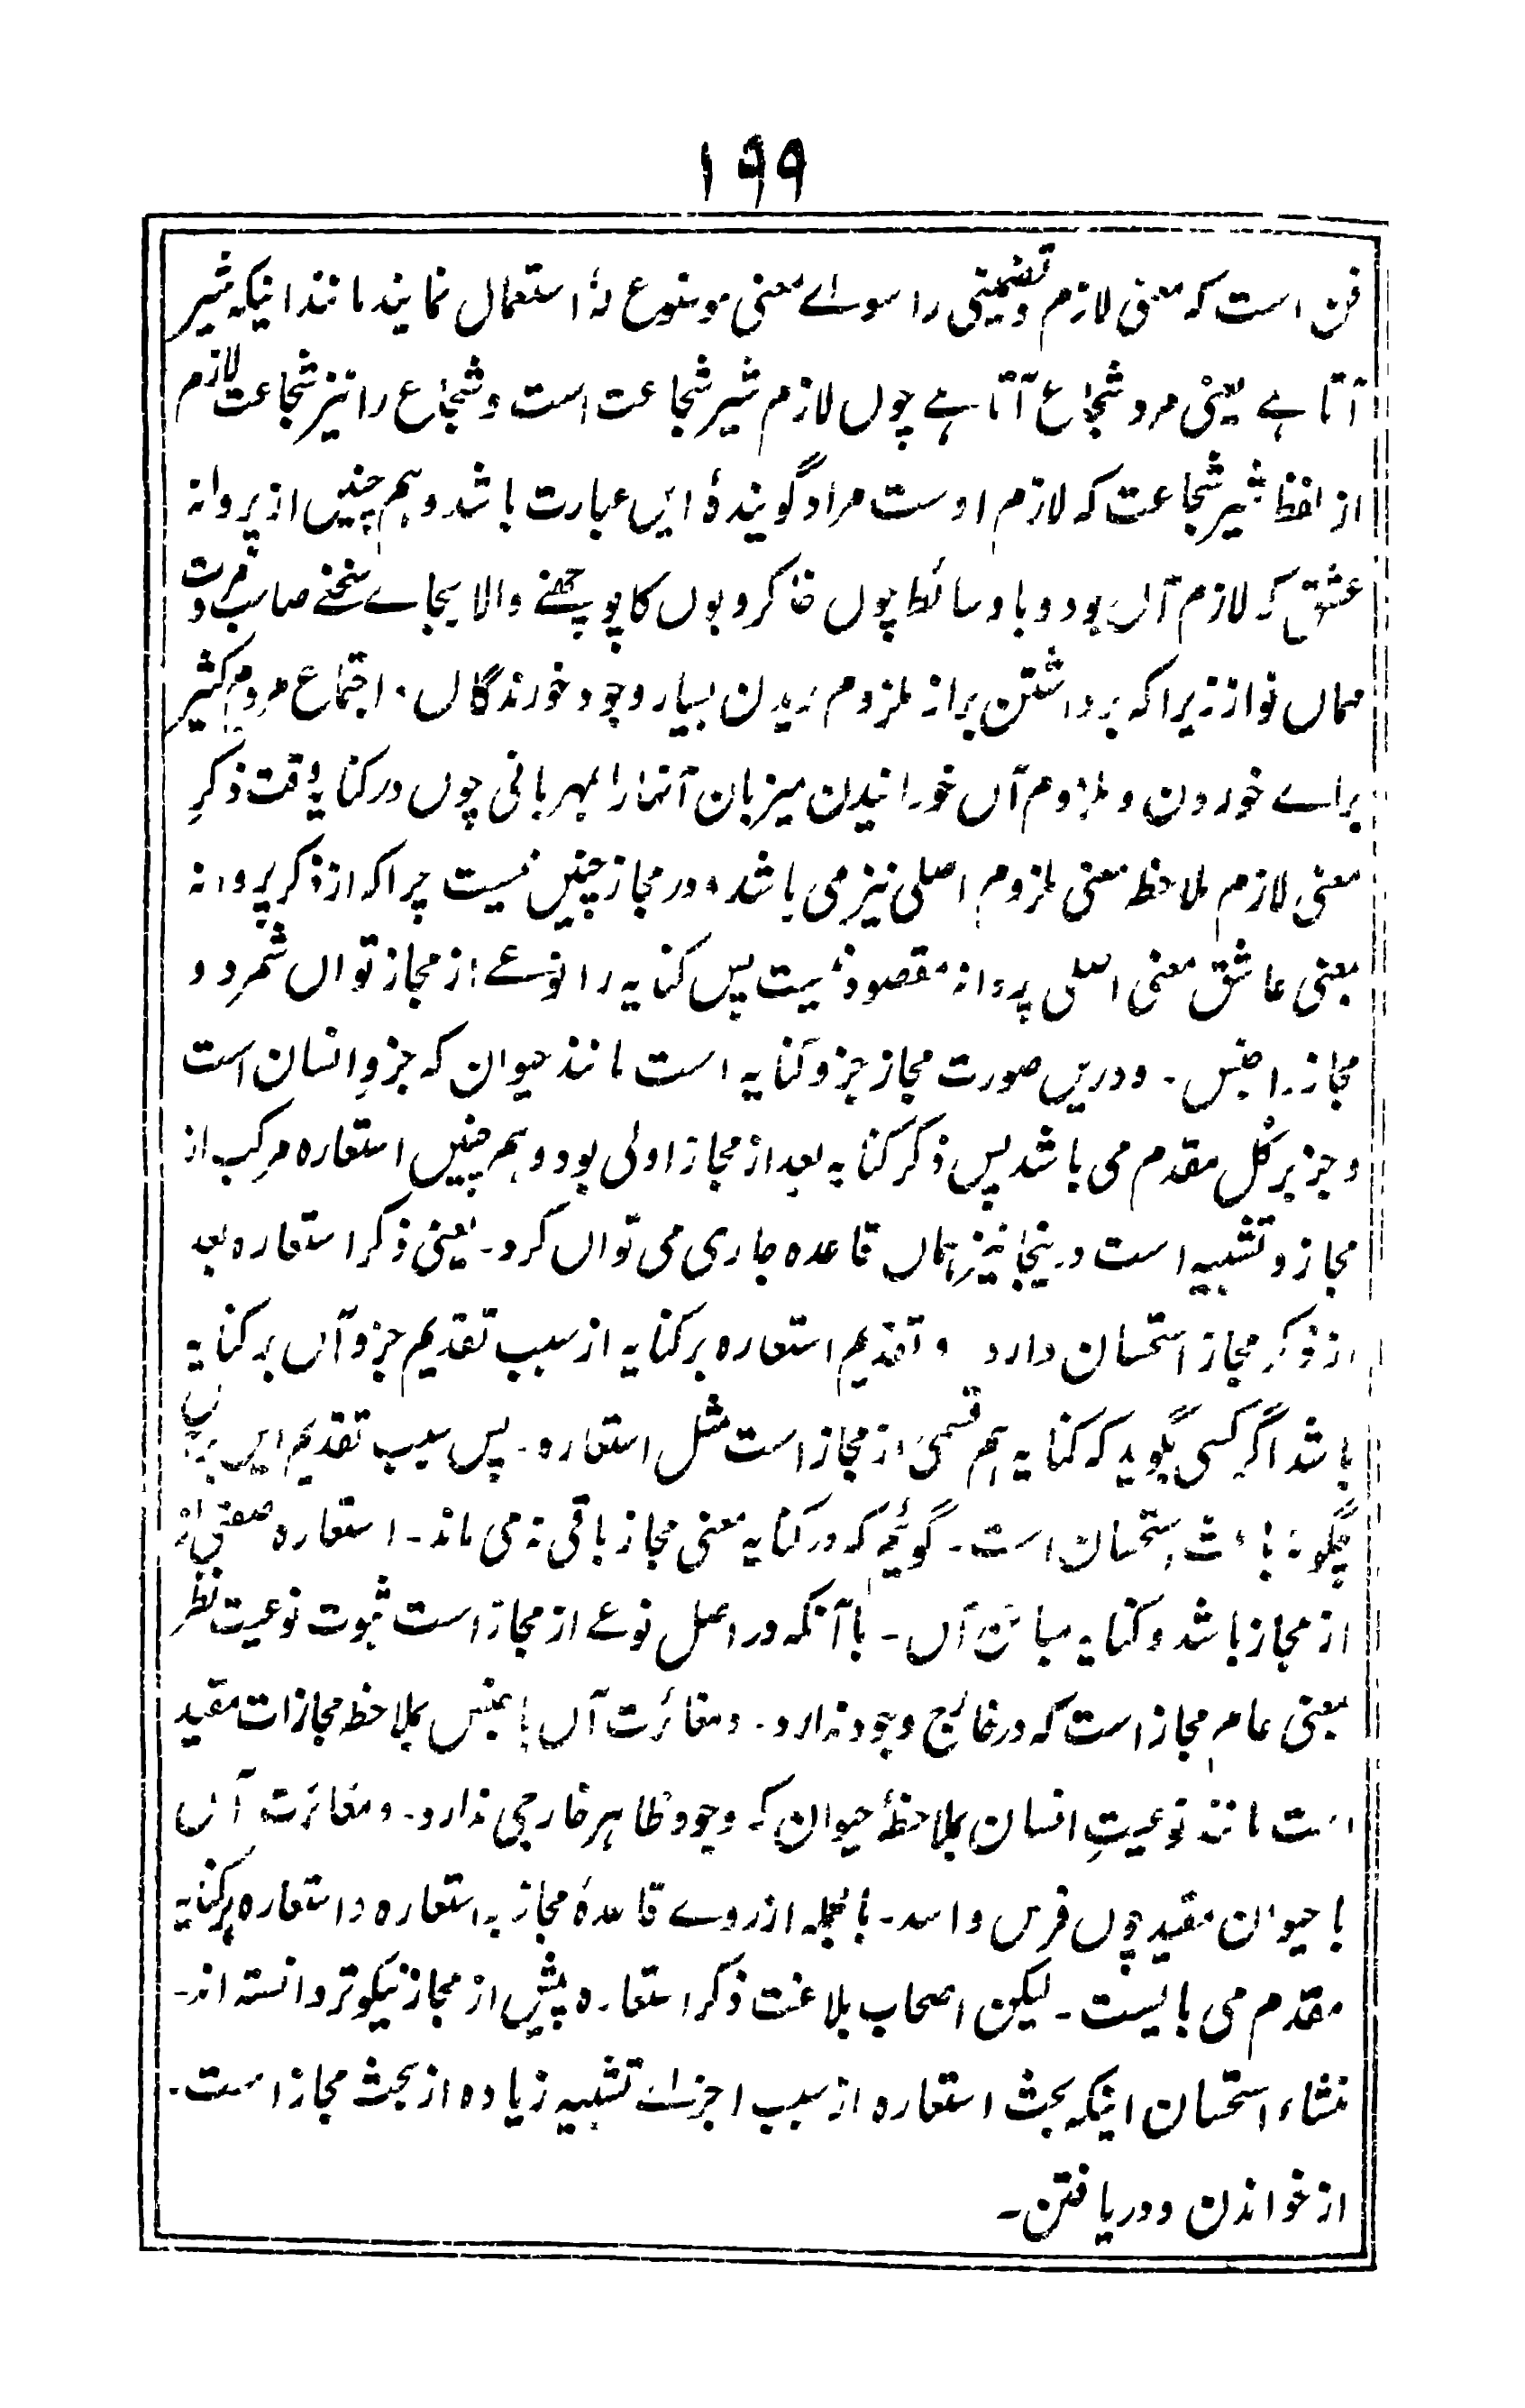 ۱۹۹
فن است که معنی لازم و تضمنی را سواے معنی موضوع لہٗ استعمال نمایند مانند اینکہ شیر
آتا ہے یعنی مرد شجاع آتا ہے چوں لازم شیر شجاعت است و شجاع را نیز شجاعت لازم
از لفظ شیر شجاعت کہ لازم اوست مراد گویندۂ ایں عبارت باشد و ہم چنیں از پروانہ
عشق کہ لازم آں بود و با وسائط چوں خاکروبوں کا پوچھنے والا بجاے سخی صاحب مروت و
مہماں نواز زیرا کہ برداشتن براز ملزوم ریدن بسیار وجود خورندگاں۔ اجتماع مردم کثیر
براے خوردن و ملزوم آں خورانیدن میزبان آنہا را بمہربانی چوں در کنایہ وقت ذکرِ
معنی لازم ملاحظہ معنی ملزوم اصلی نیز می باشد و در مجاز چنیں نیست چرا کہ از ذکر پروانہ
بمعنی عاشق معنی اصلی پروانہ مقصود نیست پس کنایہ را نوعے از مجاز تواں شمرد و
مجاز را جنس۔ و دریں صورت مجاز جزو کنایہ است مانند حیوان کہ جزوِ انسان است
و جز بر کُل مقدم می باشد پس ذکر کنایہ بعد از مجاز اولی بود و ہم چنیں استعارہ مرکب از
مجاز و تشبیہ است درینجا نیز ہماں قاعدہ جاری می تواں کرد۔ یعنی ذکر استعارہ بعد
از ذکر مجاز استحسان دارد و تقدیم استعارہ بر کنایہ از سبب تقدیم جزو آں بر کنایہ
باشد اگر کسی بگوید کہ کنایہ ہم قسمی از مجاز است مثل استعارہ۔ پس سبب تقدیم ایں بر آں
چگونہ باعث استحسان است۔ گوئیم کہ در کنایہ معنی مجاز باقی نہ می ماند۔ استعارہ صنفی از
از مجاز باشد و کنایہ مبائن آں۔ با آنکہ در اصل نوعے از مجاز است ثبوت نوعیت نظر
بمعنی عام مجاز است کہ در خارج وجود ندارد۔ و مغائرت آں با جنس بملاحظہ مجازات مقید
است مانند نوعیتِ انسان بملاحظۂ حیوان کہ وجود ظاہر خارجی ندارد۔ و مغائرت آں
با حیوان مقید چوں فرس و اسد۔ بالجملہ از روے قاعدۂ مجاز بہ استعارہ و استعارہ بر کنایہ
مقدم می بایست۔ لیکن اصحاب بلاغت ذکر استعارہ پیش از مجاز نیکوتر دانستہ اند۔
منشاء استحسان اینکہ بحث استعارہ از سبب اجزاے تشبیہ زیادہ از بحث مجاز است۔
از خواندن و دریافتن۔